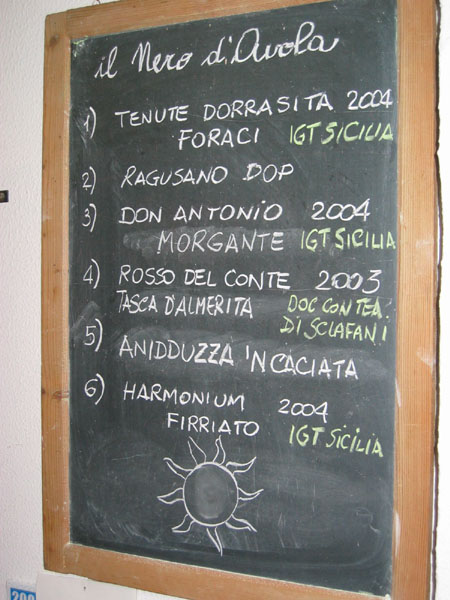 il Nero d'Avola
1) TENUTE DORRASITA 2004
FORACI IGT SICILIA
2) RAGUSANO DOP
3) DON ANTONIO 2004
MORGANTE IGT SICILIA
4) ROSSO DEL CONTE 2003
TASCA D'ALMERITA DOC CONTEA
DI SCLAFANI
5) ANIDDUZZA 'NCACIATA
6) HARMONIUM 2004
FIRRIATO IGT SICILIA
200